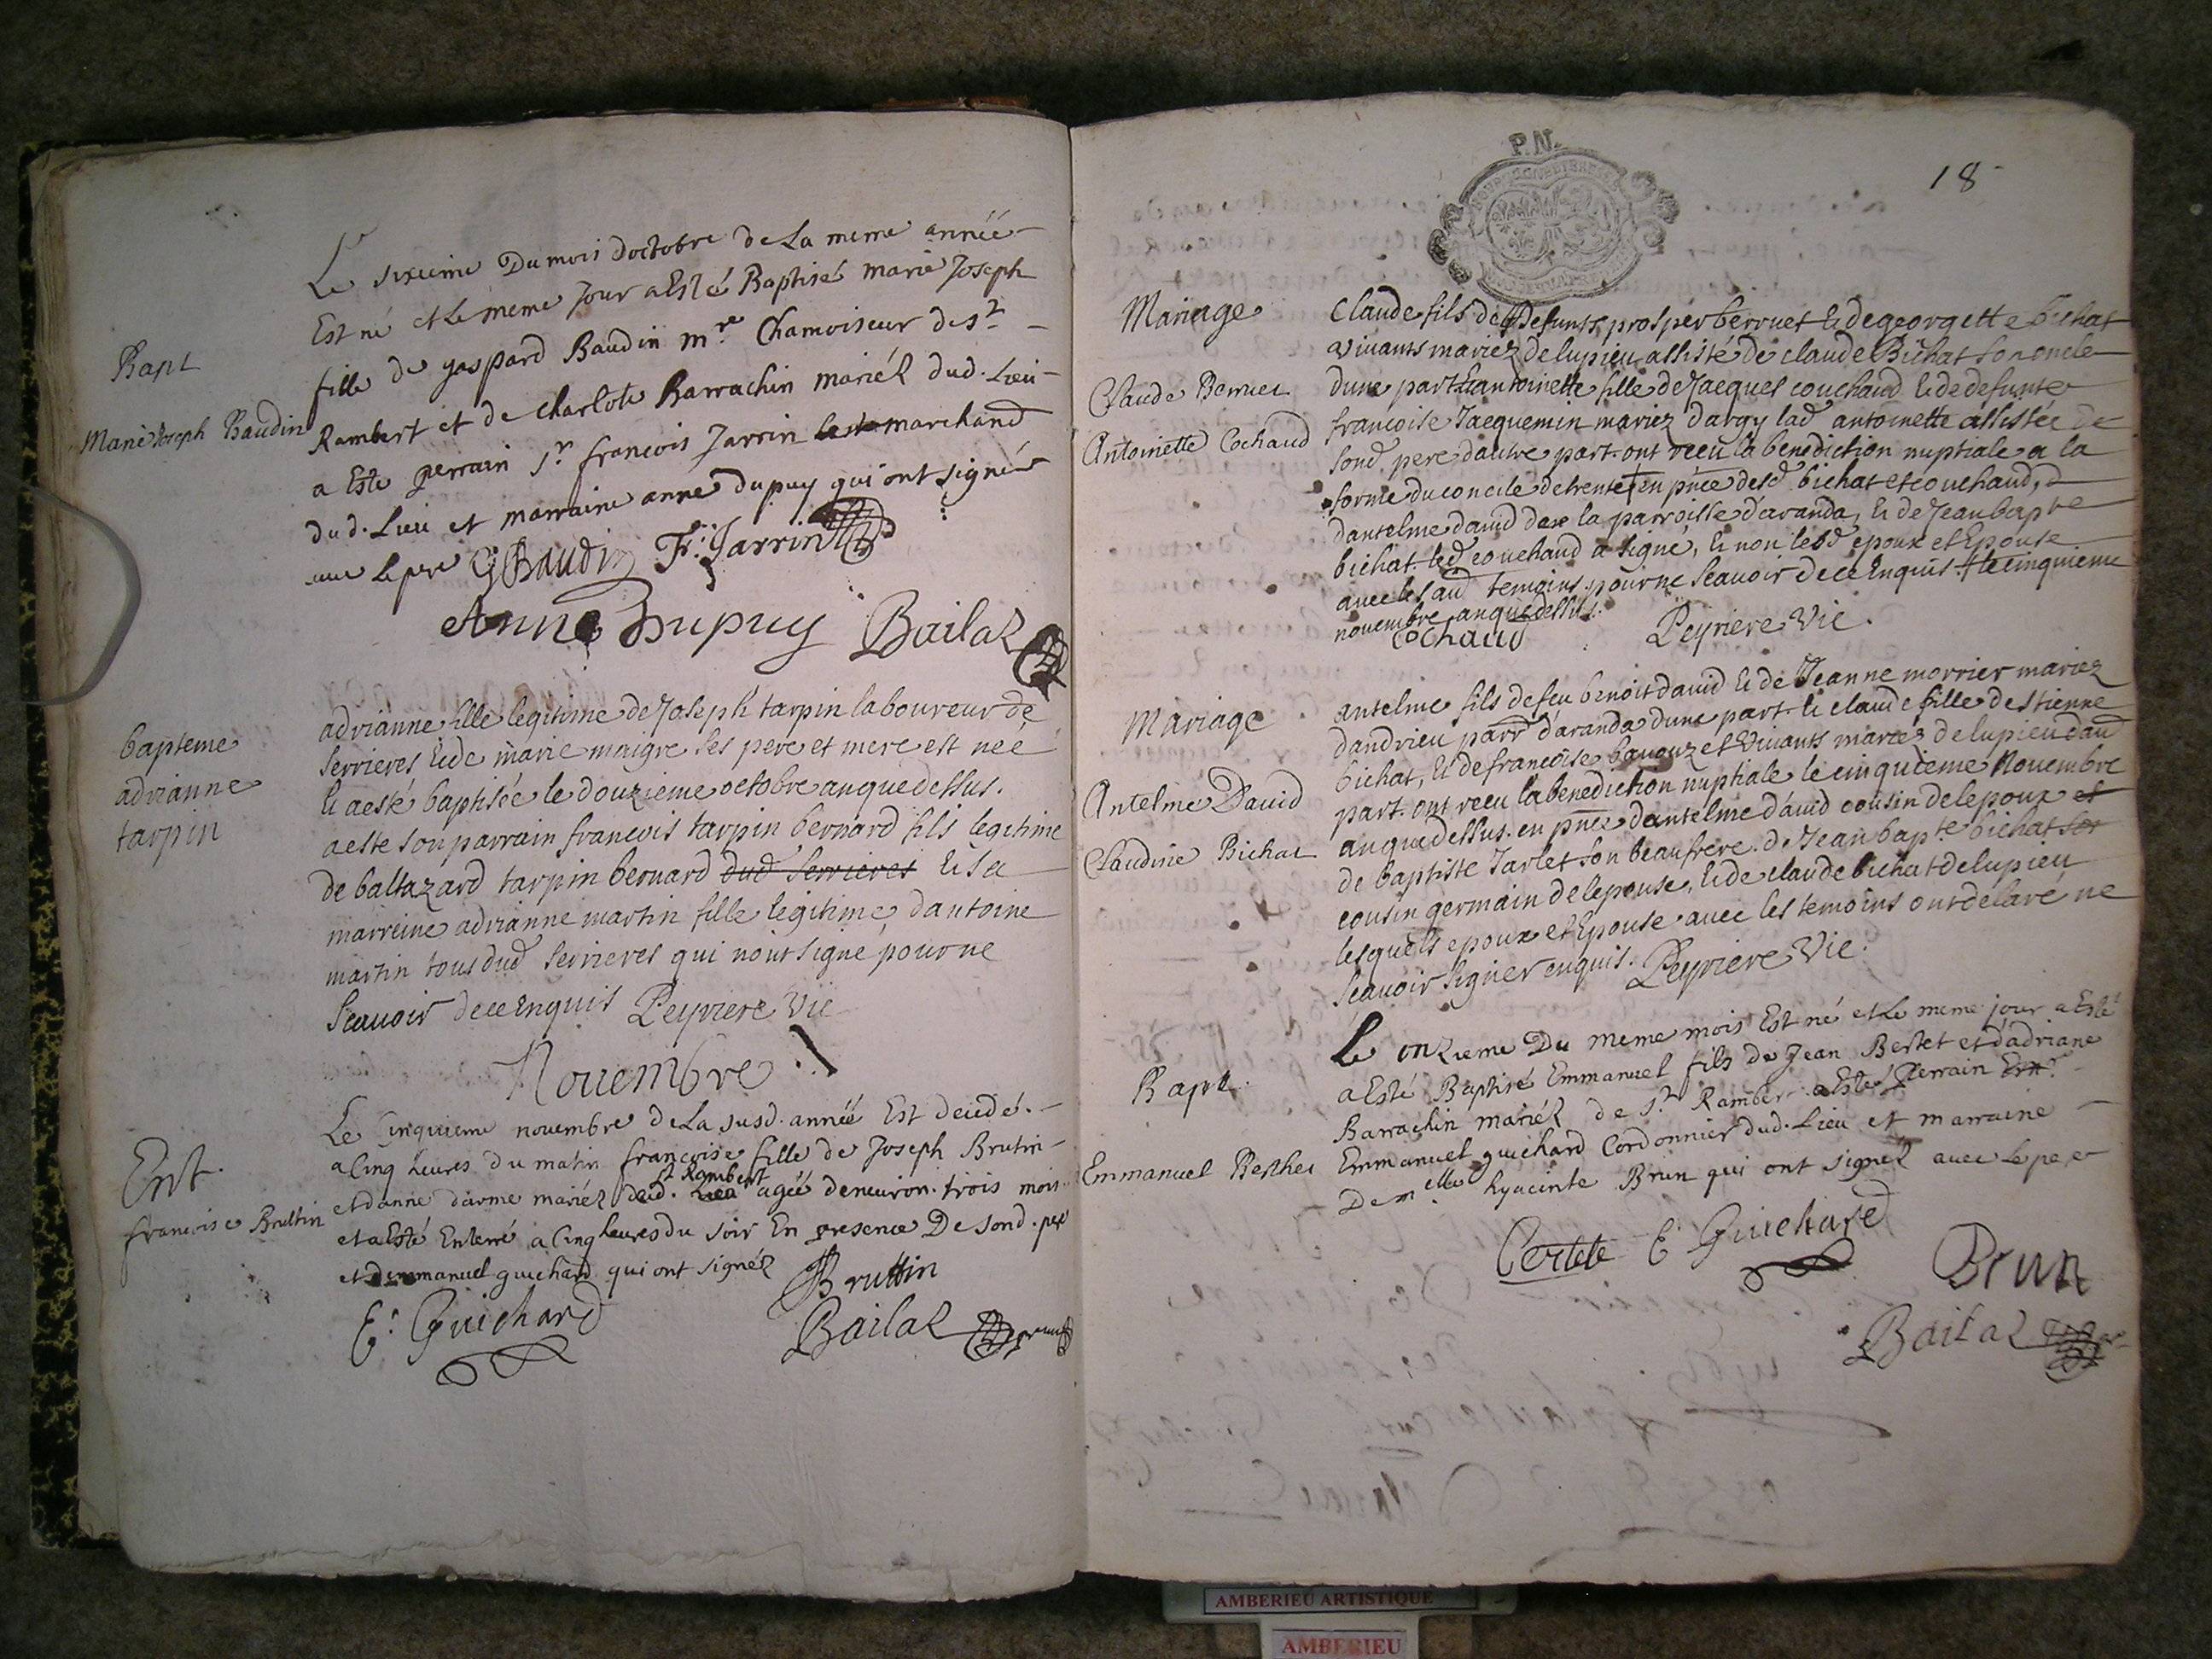 Bapt
Marie Joseph Baudin
Le sixieme Du mois doctobre de La meme année
Est né et le meme Jour a Esté Baptisé marie Joseph
fille de gaspard Baudin mre Chamoiseur de st
Rambert et de charlote Barrachin mariéz dud. Lieu
a Este perrain sr francois Jarrin marchand
dud. Lieu et marraine anne dupuy qui ont signéz
avec Le pere GBaudin Fr: Jarrin
Anne Dupuy Bailaz
bapteme
adrianne
tarpin
adrianne fille legitime de Joseph tarpin laboureur de
serrieres & de marie maigre ses pere et mere est neé
& a esté baptisée le douzieme octobre an que dessus.
a este son parrain francois tarpin bernard fils legitime
de baltazard tarpin bernard dud serrieres & sa
marreine adrianne martin fille legitime dantoine
martin tous dud serrieres qui nont signé pour ne
scavoir de ce Enquis Peyriere Vic
Novembre
Ent.
francoise Bruttin
Le Cinquieme novembre de La susd. année Est decedé.
a Cinq heures du matin francoise fille de Joseph Brutin
st Rambert
et danne darme mariéz dud. Lieu agée denviron trois mois
et a Esté Enterré a Cinq heures du soir En presence De sond. pere
et demmanuel guichard qui ont signéz Bruttin
E: Guichard Bailaz
P.N.
18
Mariage
Claude Berruet
Antoinette Cochaud
Claude fils de Defunts prosper berruet & de georgette bichat
vivants mariez de lupieu assisté de claude Bichat son oncle
dune part & antoinette fille de Jacques couchaud & de defunte
francoise Jacquemin mariez dargy lad antoinette assistée de
sond pere dautre part. ont receu la benediction nuptiale a la
forme du concile de trente † en pnce desd bichat et couchaud, &
dantelme david de la parroisse daranda, & de Jean bapte
bichat. led couchaud a signé, & non lesd epoux et Epouse
avec les au temoins pour ne scavoir de ce Enquis. † le cinquieme
novembre an que dessus.
Cochaud Peyriere Vic.
Mariage
Antelme David
Claudine Bichat
antelme fils de feu benoit david & de Jeanne morrier mariez
dandrieu parr daranda dune part. & claude fille destienne
bichat, & de francoise bavouz et vivants mariez de lupieu dau
part. ont receu la benediction nuptiale le cinquieme Novembre
an que dessus. en pnce dantelme david cousin de lepoux et
de baptiste Jarlet son beaufrere. de Jean bapte bichat ser
cousin germain de lepouse, & de claude bichat de lupieu
lesquels epoux et Epouse avec les temoins ont delaré ne
scavoir signer enquis. Peyriere Vic.
Bapt.
Emmanuel Berthet
Le onzieme Du meme mois Est né et Le meme jour a Esté
a Esté Baptisé Emmanuel fils de Jean Bertet et dadriane
Barrachin mariéz de st Rambert a Esté Perrain Emr
Emmanuel guichard Cordonnier dud. Lieu et marraine
Demelle hyacinte Brun qui ont signéz avec Le pere
E: Guichard
Brun
Bailaz
AMBERIEU ARTISTIQUE
AMBERIEU